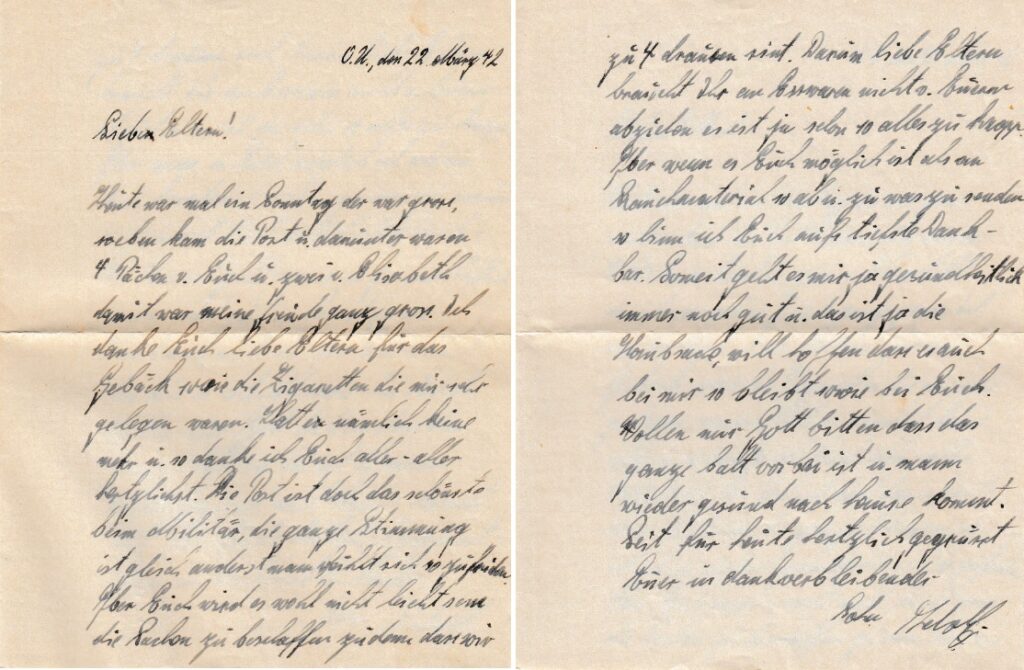 O.U., den 22. März 42
Lieben Eltern!
Heute war mal ein Sonntag der war gross,
soeben kam die Post u. darunter waren
4 Päckchen v. Euch u. zwei v. Elisabeth
damit war meine freude ganz gross. Ich
danke Euch liebe Eltern für das
Gebäck sowie die Zigaretten die mir sehr
gelegen waren. Hatten nämlich keine
mehr u. so danke ich Euch aller-aller
hertzlichst. Die Post ist doch das schönste
beim Militär, die ganze Stimmung
ist gleich anderst mann fühlt sich so zufrieden.
Aber Euch wird es wohl nicht leicht sein
die Sachen zu beschaffen zu denn dass wir
zu 4 drausen sint. Darum liebe Eltern
braucht Ihr an Esswaren nicht v. Euerm
abziehen es ist ja schon so alles zu knapp.
Aber wenn es Euch möglich ist als an
Rauchmaterial so ab u. zu was zu senden
so binn ich Euch aufs tiefste Dank-
bar. Soweit geht es mir ja gesundheitlich
immer noch gut u. das ist ja die
Haubsache, will hoffen dass es auch
bei mir so bleibt sowie bei Euch.
Wollen nur Gott bitten dass das
ganze balt vorbei ist u. mann
wieder gesund nach hause kommt.
Seit für heute hertzlich gegrüsst
Euer in dankverbleibender
Sohn